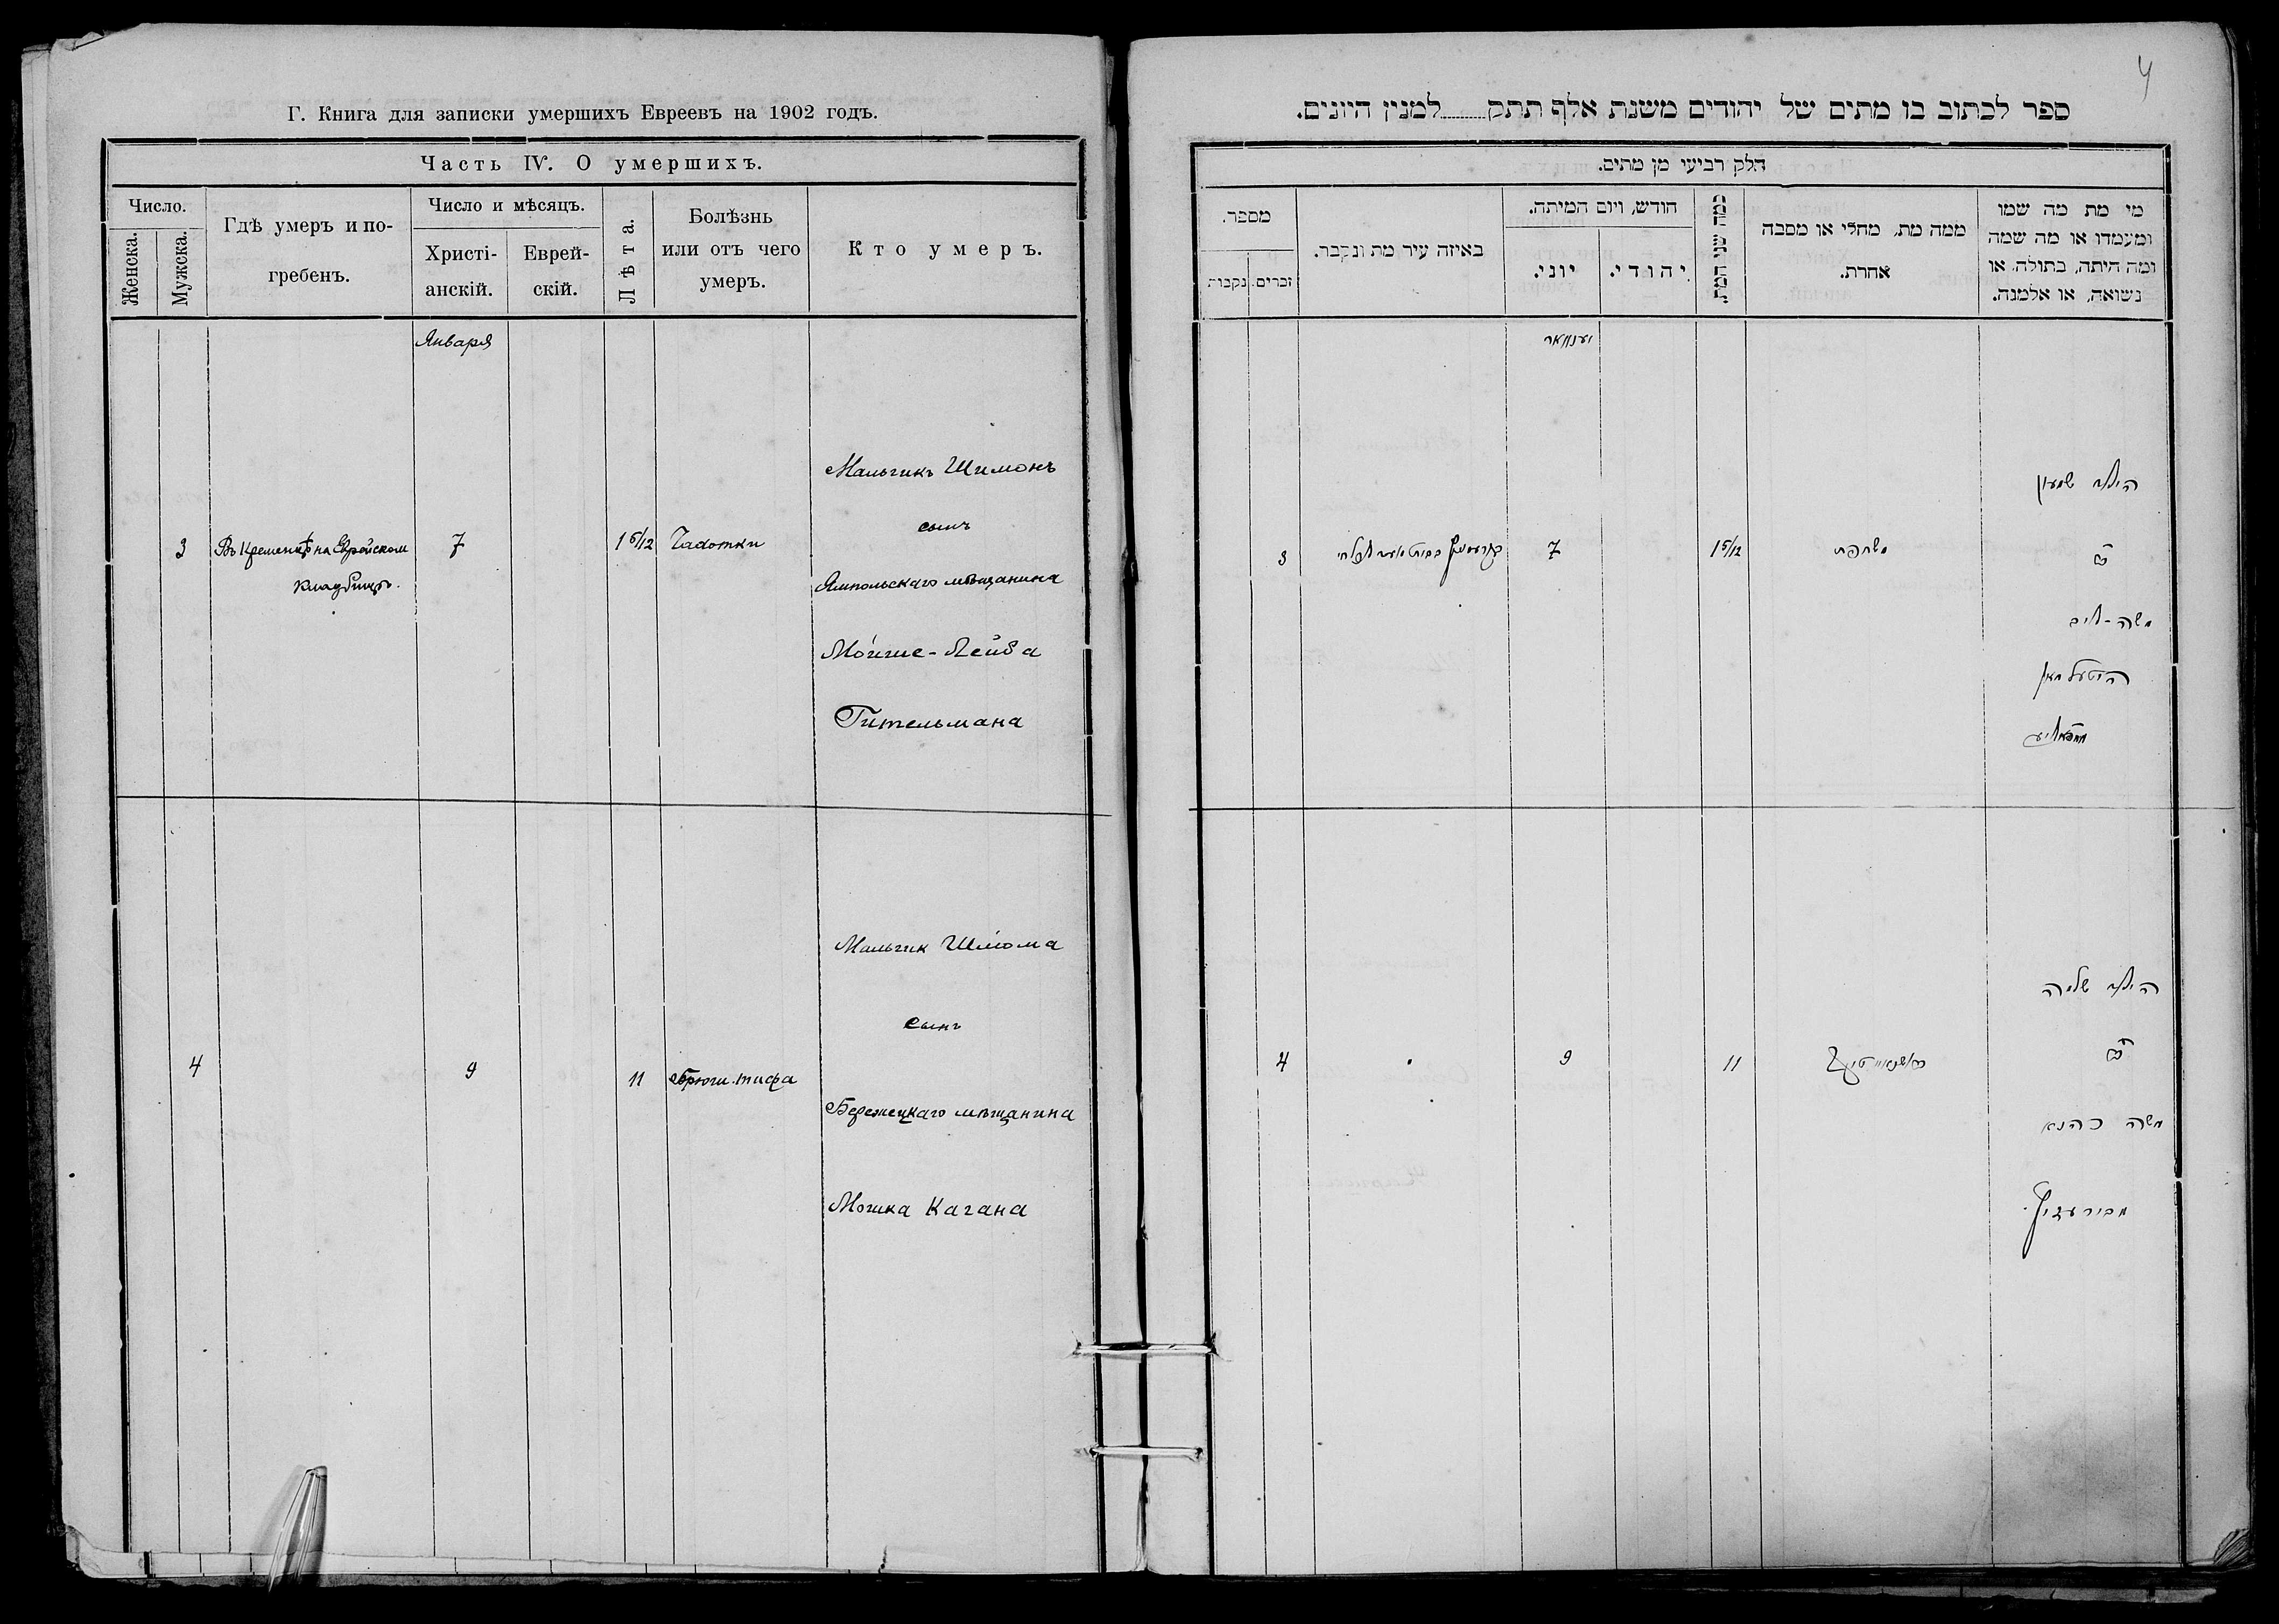 Г. Книга для записки умершихъ Евреевъ на 1902 годъ.
Часть IV. О умершихъ.
Число.
Женска.
Мужска.
Гдѣ умеръ и по-
гребенъ.
Число и мѣсяцъ.
Христі-
анскій.
Еврей-
скій.
Лѣта.
Болѣзнь
или отъ чего
умеръ.
Кто умеръ.
Января
Мальчикъ Шимонъ
сынъ
3 Въ Кременцѣ на Еврейском 7 1 5/12 Чахотки
кладбищѣ.
Ямпольскаго мѣщанина
Мойше-Лейба
Гительмана
Мальчик Шлiома
сынъ
4 9 11 Брюшн. тифа
Бережецкаго мѣщанина
Мошка Кагана
4
ספר לכתוב בו מתים של יהודים משנת אלף תתק למנין היונים.
חלק רביעי מן מתים.
מספר.
נקבות
זכרים
באיזה עיר מת ונקבר.
חודש, ויום המיתה.
יוני.
יהודי.
כמה שני המת.
ממה מת, מחלי או מסבה
אחרת.
מי מת מה שמו
ומעמדו או מה שמה
ומה היתה, בתולה, או
נשואה, או אלמנה.
יענוואר
הילד שמעון
3 7 1 5/12 שחפת
ב"ר
משה-ליב
היטעלמאן
הילד שלמה
4 9 11
ב"ר
משה כהנא